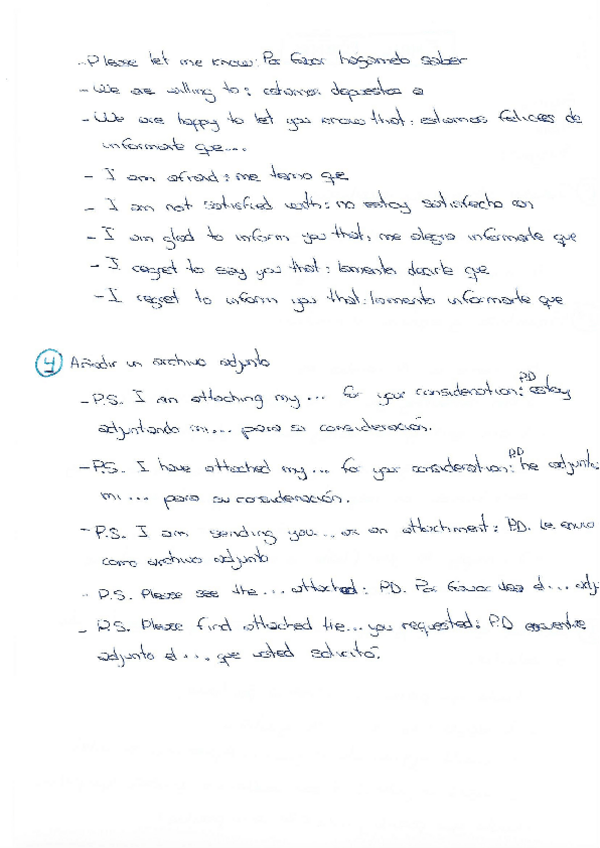 - Please let me know: Por favor hágamelo saber
- We are willing to: estamos dispuestos a
- We are happy to let you know that: estamos felices de
informarte que...
- I am afraid: me temo que
- I am not satisfied with: no estoy satisfecho con
- I am glad to inform you that: me alegro informarte que
- I regret to say you that: lamento decirte que
- I regret to inform you that: lamento informarte que
4 Añadir un archivo adjunto
- P.S. I am attaching my... for your consideration: PD estoy
adjuntando mi... para su consideración.
- P.S. I have attached my... for your consideration: PD he adjunta
mi... para su consideración.
- P.S. I am sending you... as an attachment: PD. Le envio
como archivo adjunto
- P.S. Please see the... attached: PD. Por favor vea el... adj
- P.S. Please find attached the... you requested: PD encuentre
adjunto el... que usted solicitó.